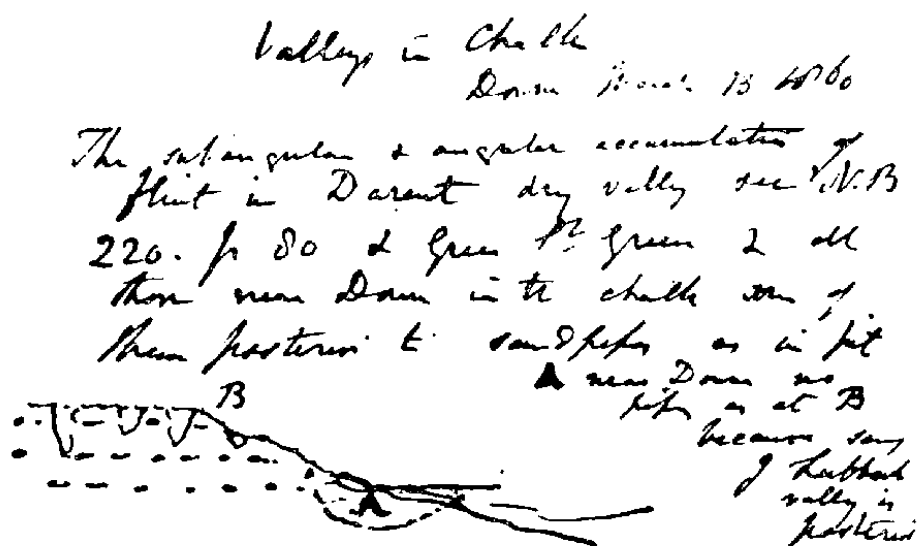 Valleys in Chalk
Down March 13 1860
The subangular & angular accumulation of
flint in Darent dry valley see N.B
220. p 80 & Green St. Green & all
those near Down in the chalk of
them posterior to sand pipes as in pit
A near Down no
pipes as at B
because says
J Lubbock
valley is
posterior
B
A